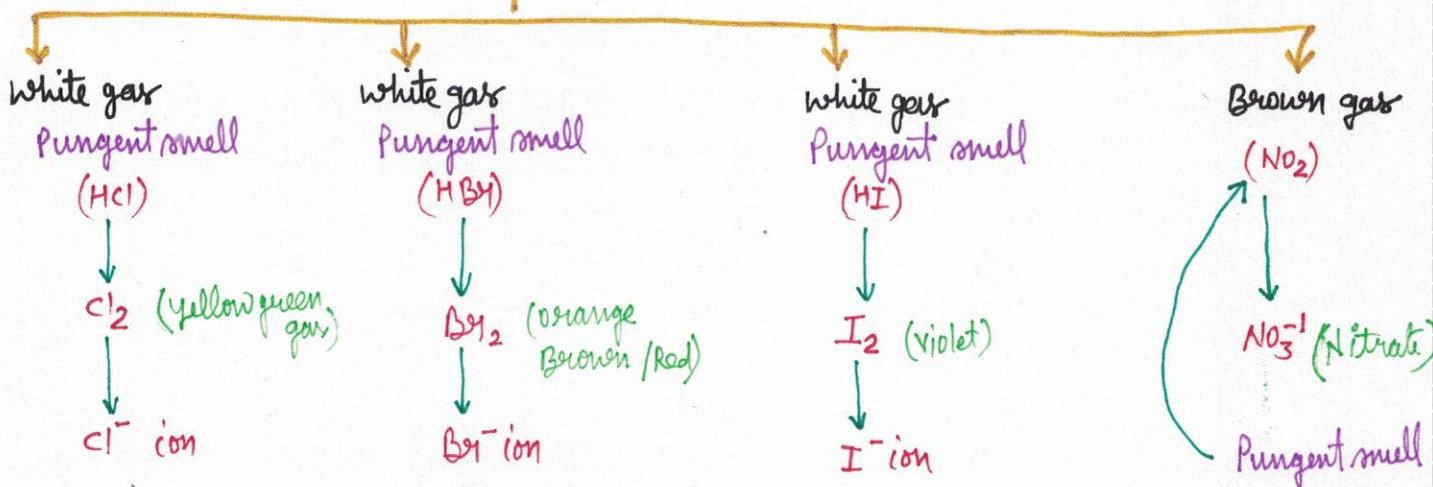 White gas
Pungent smell
(HCl)
Cl₂ (Yellow green gas)
Cl⁻ ion
White gas
Pungent smell
(HBr)
Br₂ (Orange
Brown / Red)
Br⁻ ion
White gas
Pungent smell
(HI)
I₂ (Violet)
I⁻ ion
Brown gas
(NO₂)
NO₃⁻¹ (Nitrate)
Pungent smell